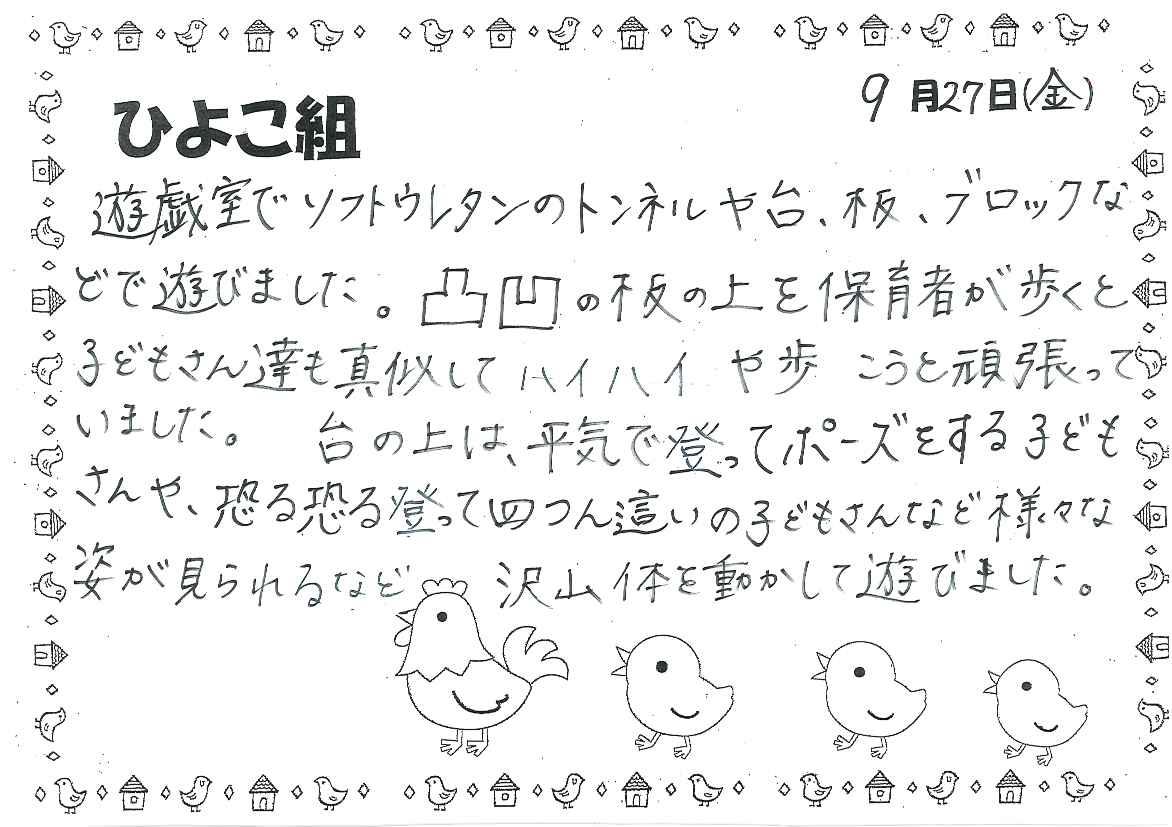 9月27日(金)
ひよこ組
遊戯室でソフトウレタンのトンネルや台、板、ブロックな
どで遊びました。凸凹の板の上を保育者が歩くと
子どもさん達も真似してハイハイや歩こうと頑張って
いました。台の上は、平気で登ってポーズをする子ども
さんや、恐る恐る登って四つん這いの子どもさんなど様々な
姿が見られるなど沢山体を動かして遊びました。